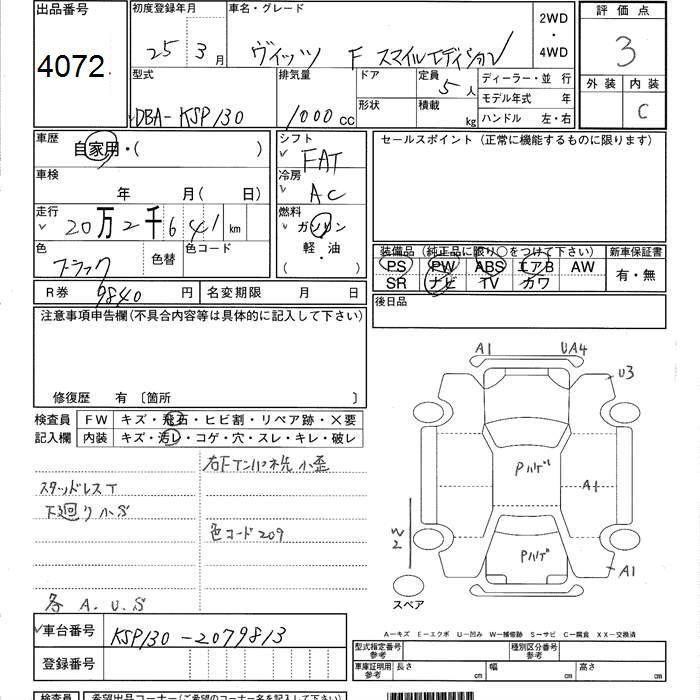 出品番号
4072
初度登録年月
25 3月
車名・グレード
ヴィッツ F スマイルエディション
2WD
・
4WD
評価点
3
外装 内装
C
型式
DBA-KSP130
排気量
1000cc
ドア
形状
定員
5人
積載
kg
ディーラー・並行
モデル年式 年
ハンドル 左・右
車歴
自家用・( )
シフト
FAT
車検
年 月( 日)
冷房
AC
走行
20万2千641km
燃料
ガソリン
軽・油
( )
色
ブラック
色替
色コード
R券 9840円
名変期限 月 日
セールスポイント(正常に機能するものに限ります)
装備品(純正品に限り○をつけて下さい)
PS PW ABS エアB AW
SR ナビ TV カワ
新車保証書
有・無
後日品
注意事項申告欄(不具合内容等は具体的に記入して下さい)
修復歴 有〔箇所 〕
検査員
記入欄
FW キズ・飛石・ヒビ割・リペア跡・×要
内装 キズ・汚レ・コゲ・穴・スレ・キレ・破レ
右Fインパネ先小歪
スタッドレスT
下廻り小S
色コード209
各 A.U.S
A1
UA4
U3
Pハゲ
A1
W2
Pハゲ
A1
スペア
車台番号 KSP130-2079813
登録番号
A-キズ E-エクボ U-凹み W-補修跡 S-サビ C-腐食 XX-交換済
型式指定番号
参考
種別区分番号
参考
車庫証明用
参考
長さ cm
幅 cm
高さ cm
検査員
希望出品コーナー(ご希望のコーナー名を記入下さい)